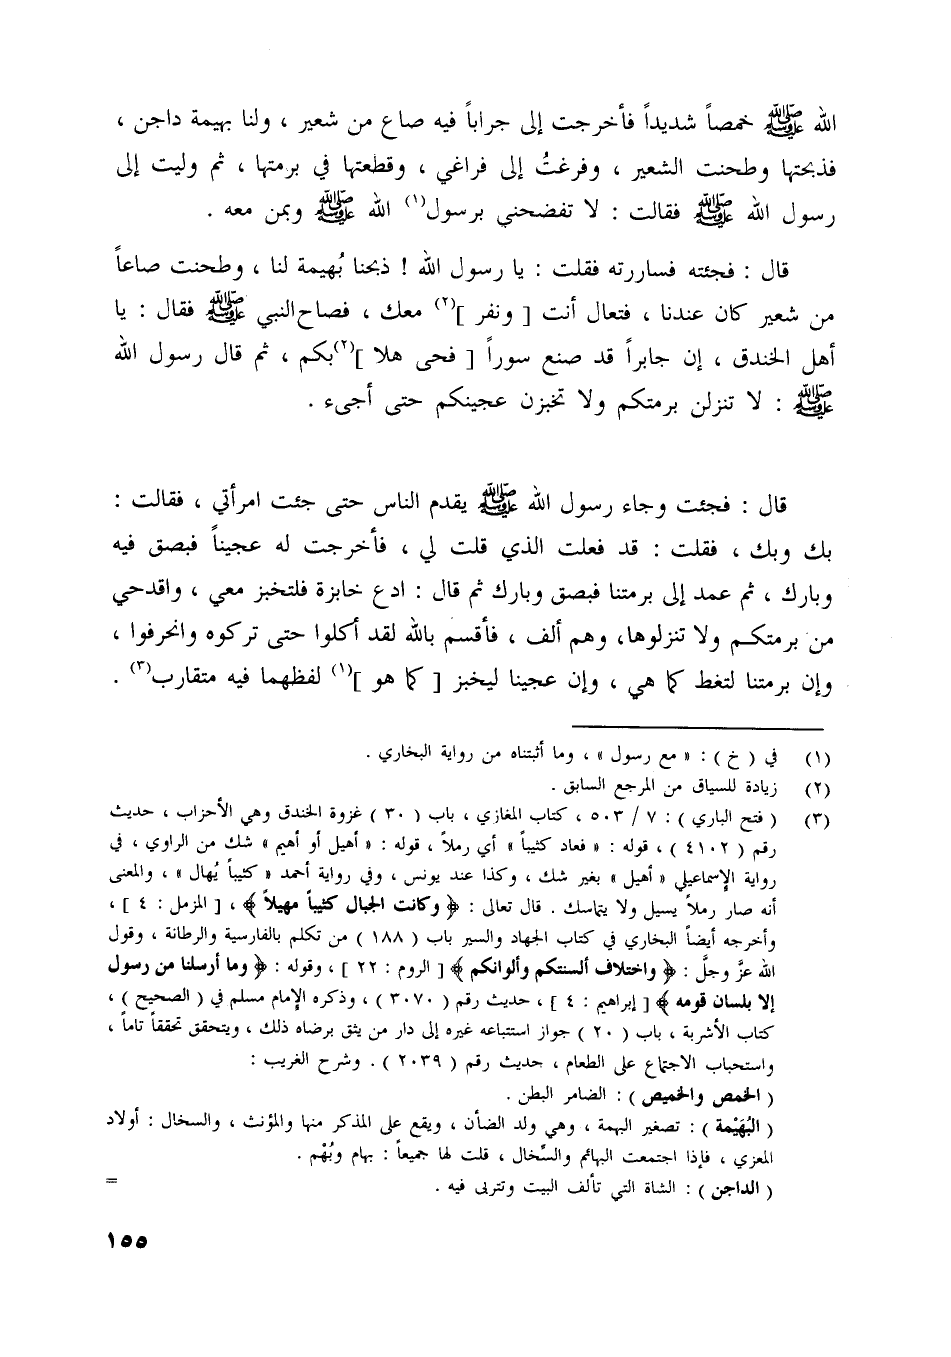 الله ﷺ خمصاً شديداً فأخرجت إلى جراباً فيه صاع من شعير ، ولنا بهيمة داجن ،
فذبحتها وطحنت الشعير ، وفرغتُ إلى فراغي ، وقطعتها في برمتها ، ثم وليت إلى
رسول الله ﷺ فقالت : لا تفضحني برسول(١) الله ﷺ وبمن معه .
قال : فجئته فساررته فقلت : يا رسول الله ! ذبحنا بُهيمة لنا ، وطحنت صاعاً
من شعير كان عندنا ، فتعال أنت [ ونفر ](٢) معك ، فصاح النبي ﷺ فقال : يا
أهل الخندق ، إن جابراً قد صنع سوراً [ فحى هلا ](٢)بكم ، ثم قال رسول الله
ﷺ : لا تنزلن برمتكم ولا تخبزن عجينكم حتى أجيء .
قال : فجئت وجاء رسول الله ﷺ يقدم الناس حتى جئت امرأتي ، فقالت :
بك وبك ، فقلت : قد فعلت الذي قلت لي ، فأخرجت له عجيناً فبصق فيه
وبارك ، ثم عمد إلى برمتنا فبصق وبارك ثم قال : ادع خابزة فلتخبز معي ، واقدحي
من برمتكم ولا تنزلوها، وهم ألف ، فأقسم بالله لقد أكلوا حتى تركوه وانحرفوا ،
وإن برمتنا لتغط كما هي ، وإن عجينا ليخبز [ كما هو ](١) لفظهما فيه متقارب(٣) .
(١) في ( خ ) : « مع رسول » ، وما أثبتناه من رواية البخاري .
(٢) زيادة للسياق من المرجع السابق .
(٣) ( فتح الباري ) : ٧ / ٥٠٣ ، كتاب المغازي ، باب ( ٣٠ ) غزوة الخندق وهي الأحزاب ، حديث
رقم ( ٤١٠٢ ) ، قوله : « فعاد كثيباً » أي رملاً ، قوله : « أهيل أو أهيم » شك من الراوي ، في
رواية الإسماعيلي « أهيل » بغير شك ، وكذا عند يونس ، وفي رواية أحمد « كثيباً يُهال » ، والمعنى
أنه صار رملاً يسيل ولا يتماسك . قال تعالى : ﴿ وكانت الجبال كثيباً مهيلاً ﴾ ، [ المزمل : ٤ ] ،
وأخرجه أيضاً البخاري في كتاب الجهاد والسير باب ( ١٨٨ ) من تكلم بالفارسية والرطانة ، وقول
الله عزَّ وجلَّ : ﴿ واختلاف ألسنتكم وألوانكم ﴾ [ الروم : ٢٢ ] ، وقوله : ﴿ وما أرسلنا من رسول
إلا بلسان قومه ﴾ [ إبراهيم : ٤ ] ، حديث رقم ( ٣٠٧٠ ) ، وذكره الإمام مسلم في ( الصحيح ) ،
كتاب الأشربة ، باب ( ٢٠ ) جواز استتباعه غيره إلى دار من يثق برضاه ذلك ، ويتحقق تحققاً تاماً ،
واستحباب الاجتماع على الطعام ، حديث رقم ( ٢٠٣٩ ) . وشرح الغريب :
( الخمص والخميص ) : الضامر البطن .
( البُهَيْمة ) : تصغير البهمة ، وهي ولد الضأن ، ويقع على المذكر منها والمؤنث ، والسخال : أولاد
المعزي ، فإذا اجتمعت البهائم والسِّخال ، قلت لها جميعاً : بهام وبُهْم .
( الداجن ) : الشاة التي تألف البيت وتتربى فيه .
=
١٥٥